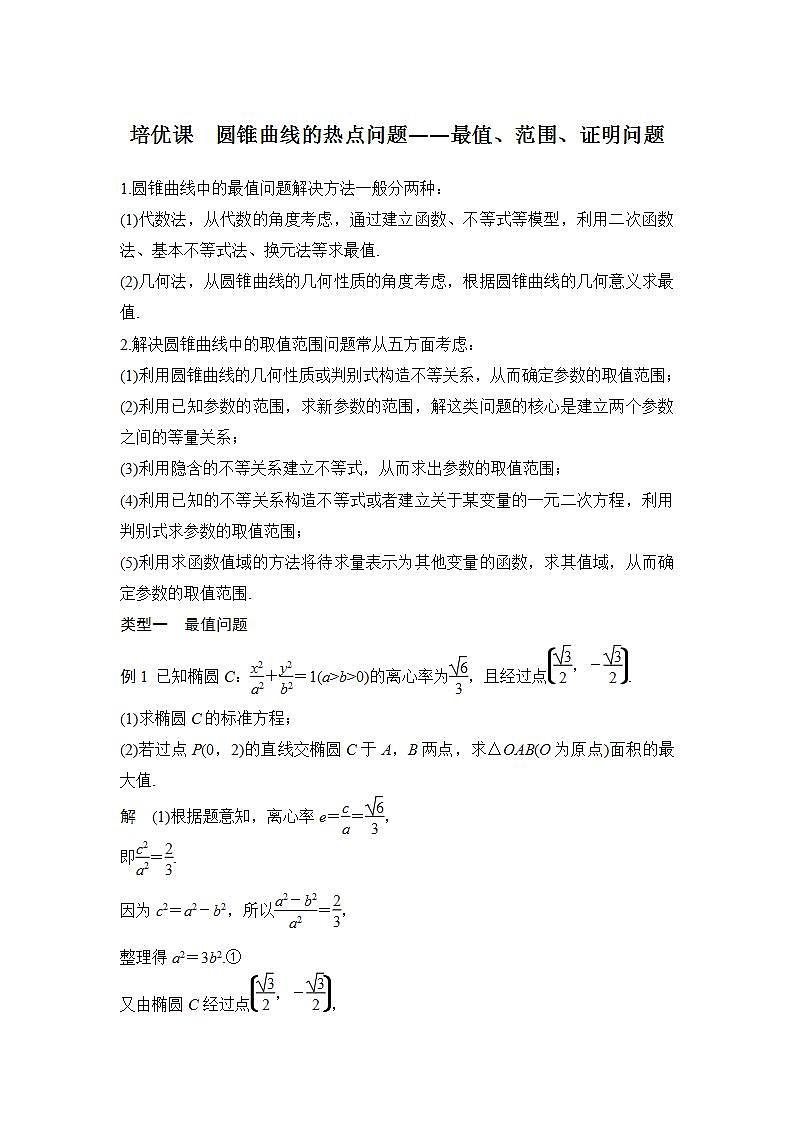 培优课　圆锥曲线的热点问题——最值、范围、证明问题
1.圆锥曲线中的最值问题解决方法一般分两种：
(1)代数法，从代数的角度考虑，通过建立函数、不等式等模型，利用二次函数
法、基本不等式法、换元法等求最值.
(2)几何法，从圆锥曲线的几何性质的角度考虑，根据圆锥曲线的几何意义求最
值.
2.解决圆锥曲线中的取值范围问题常从五方面考虑：
(1)利用圆锥曲线的几何性质或判别式构造不等关系，从而确定参数的取值范围；
(2)利用已知参数的范围，求新参数的范围，解这类问题的核心是建立两个参数
之间的等量关系；
(3)利用隐含的不等关系建立不等式，从而求出参数的取值范围；
(4)利用已知的不等关系构造不等式或者建立关于某变量的一元二次方程，利用
判别式求参数的取值范围；
(5)利用求函数值域的方法将待求量表示为其他变量的函数，求其值域，从而确
定参数的取值范围.
类型一　最值问题
例1 已知椭圆C：x2/a2＋y2/b2＝1(a>b>0)的离心率为√6/3，且经过点(√3/2，－√3/2).
(1)求椭圆C的标准方程；
(2)若过点P(0，2)的直线交椭圆C于A，B两点，求△OAB(O为原点)面积的最
大值.
解　(1)根据题意知，离心率e＝c/a＝√6/3，
即c2/a2＝2/3.
因为c2＝a2－b2，所以(a2－b2)/a2＝2/3，
整理得a2＝3b2.①
又由椭圆C经过点(√3/2，－√3/2)，